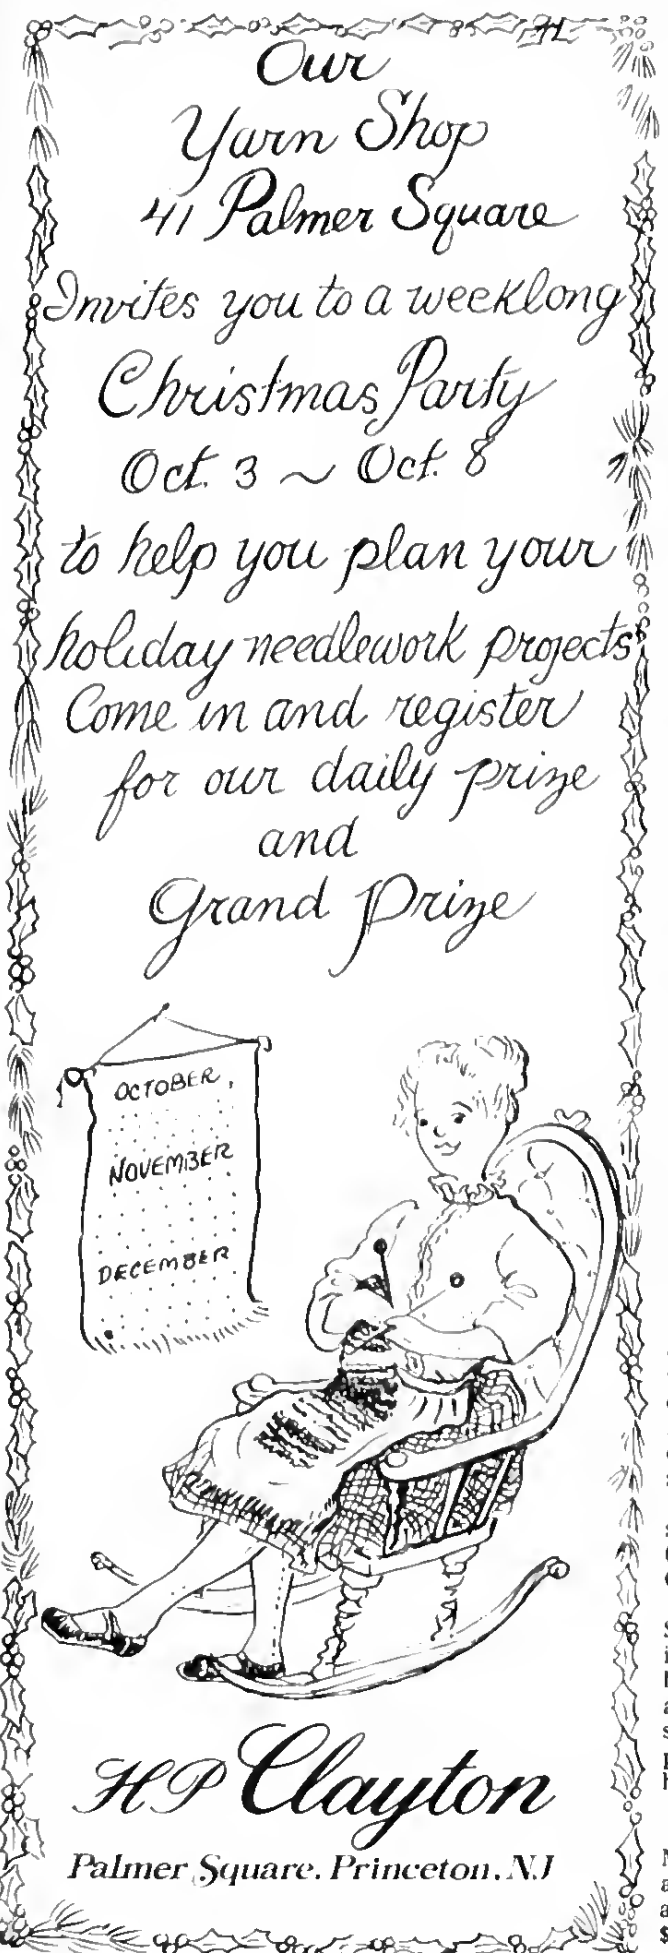 Our
Yarn Shop
41 Palmer Square
Invites you to a weeklong
Christmas Party
Oct. 3 ~ Oct. 8
to help you plan your
holiday needlework projects
Come in and register
for our daily prize
and
Grand Prize
OCTOBER,
NOVEMBER
DECEMBER
HP Clayton
Palmer Square. Princeton. NJ